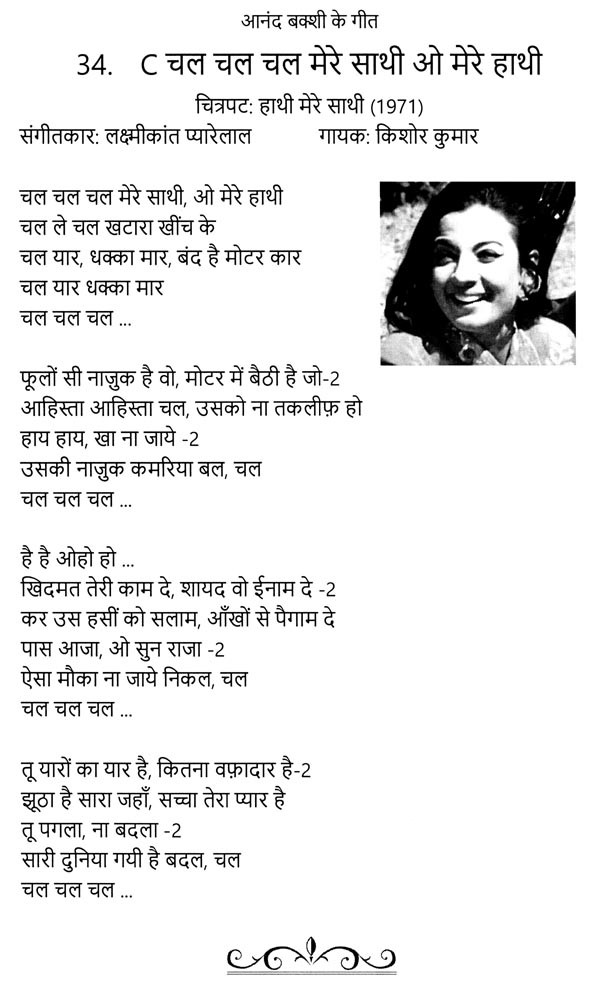 आनंद बक्शी के गीत
34. C चल चल चल मेरे साथी ओ मेरे हाथी
चित्रपट: हाथी मेरे साथी (1971)
संगीतकार: लक्ष्मीकांत प्यारेलाल गायक: किशोर कुमार
चल चल चल मेरे साथी, ओ मेरे हाथी
चल ले चल खटारा खींच के
चल यार, धक्का मार, बंद है मोटर कार
चल यार धक्का मार
चल चल चल ...
फूलों सी नाज़ुक है वो, मोटर में बैठी है जो-2
आहिस्ता आहिस्ता चल, उसको ना तकलीफ़ हो
हाय हाय, खा ना जाये -2
उसकी नाज़ुक कमरिया बल, चल
चल चल चल ...
है है ओहो हो ...
खिदमत तेरी काम दे, शायद वो ईनाम दे -2
कर उस हसीं को सलाम, आँखों से पैगाम दे
पास आजा, ओ सुन राजा -2
ऐसा मौका ना जाये निकल, चल
चल चल चल ...
तू यारों का यार है, कितना वफ़ादार है-2
झूठा है सारा जहाँ, सच्चा तेरा प्यार है
तू पगला, ना बदला -2
सारी दुनिया गयी है बदल, चल
चल चल चल ...